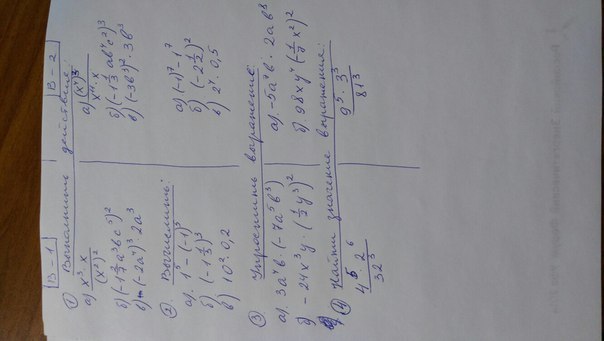 В-1 В-2
① Выполнить действие:
а) x³·x / (x²)² а) (x⁴)³ / x¹¹·x
б) (-1 2/3 a³bc⁵)² б) (-1 1/3 ab⁴c²)³
в) (-2a⁴)³·2a³ в) (-3b³)²·3b³
2. Вычислить:
а) 1³-(-1)³ а) (-1)⁷-1⁷
б) (-1 1/2)³ б) (-2 1/2)²
в) 10²·0,2 в) 2⁴·0,5
③ Упростить выражение:
а) 3a⁴b·(-7a⁵b³) а) -5a⁴b·2ab³
б) -24x³y·(1/2y³)² б) 98xy⁴(-1/7x²)²
④ Найти значение выражения:
4⁵·2⁶ / 32³ 9⁵·3³ / 81³